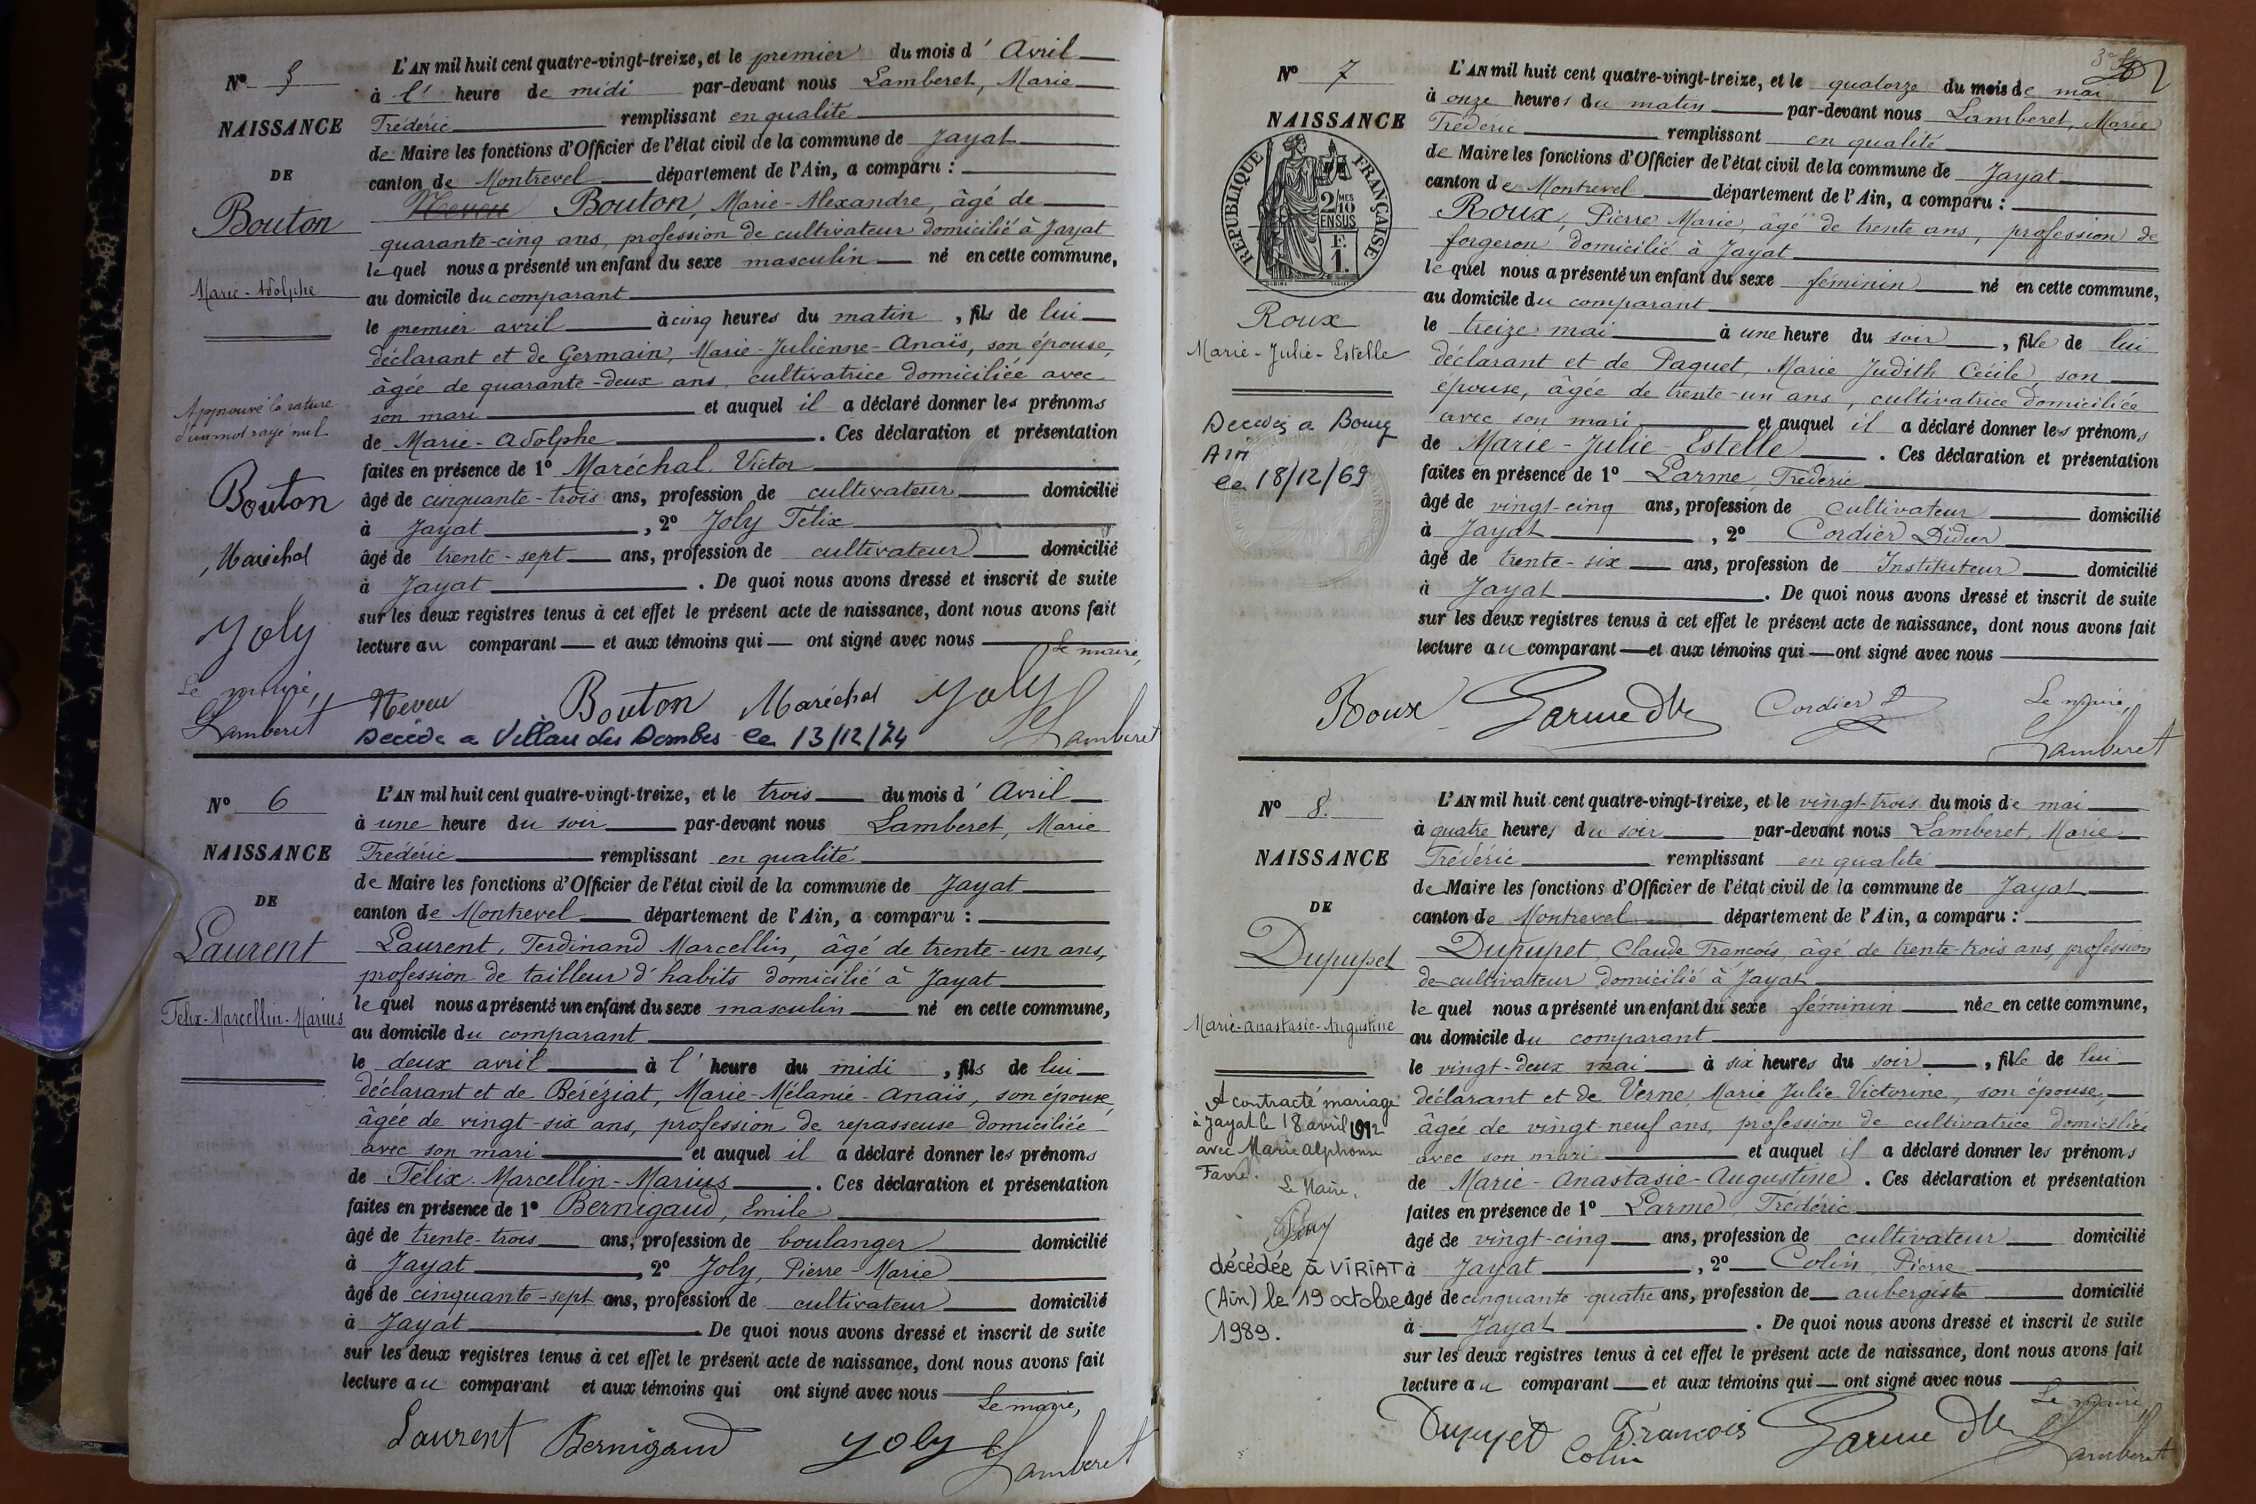 Nº 5
NAISSANCE
DE
Bouton
Marie-Adolphe
Approuvé la rature
d'un mot rayé nul
Bouton
Maréchal
Joly
Le maire,
Lamberet
L'AN mil huit cent quatre-vingt-treize, et le premier du mois d'Avril
à l'heure de midi par-devant nous Lamberet, Marie
Frédéric remplissant en qualité
de Maire les fonctions d'Officier de l'état civil de la commune de Jayat
canton de Montrevel département de l'Ain, a comparu :
Neveu Bouton, Marie-Alexandre, âgé de
quarante-cinq ans, profession de cultivateur domicilié à Jayat
lequel nous a présenté un enfant du sexe masculin né en cette commune,
au domicile du comparant
le premier avril à cinq heures du matin, fils de lui
déclarant et de Germain, Marie-Julienne-Anaïs, son épouse,
âgée de quarante-deux ans, cultivatrice domiciliée avec
son mari et auquel il a déclaré donner les prénoms
de Marie-Adolphe. Ces déclaration et présentation
faites en présence de 1º Maréchal Victor
âgé de cinquante-trois ans, profession de cultivateur domicilié
à Jayat, 2º Joly Félix
âgé de trente-sept ans, profession de cultivateur domicilié
à Jayat. De quoi nous avons dressé et inscrit de suite
sur les deux registres tenus à cet effet le présent acte de naissance, dont nous avons fait
lecture au comparant et aux témoins qui ont signé avec nous
Le maire,
Neveu Bouton Maréchal Joly Lamberet
Décédé a Villars des Dombes le 13/12/74
Nº 6
NAISSANCE
DE
Laurent
Félix-Marcellin-Marius
L'AN mil huit cent quatre-vingt-treize, et le trois du mois d'Avril
à une heure du soir par-devant nous Lamberet, Marie
Frédéric remplissant en qualité
de Maire les fonctions d'Officier de l'état civil de la commune de Jayat
canton de Montrevel département de l'Ain, a comparu :
Laurent, Ferdinand Marcellin, âgé de trente-un ans,
profession de tailleur d'habits domicilié à Jayat
lequel nous a présenté un enfant du sexe masculin né en cette commune,
au domicile du comparant
le deux avril à l'heure du midi, fils de lui
déclarant et de Béréziat, Marie-Mélanie-Anaïs, son épouse,
âgée de vingt-six ans, profession de repasseuse domiciliée
avec son mari et auquel il a déclaré donner les prénoms
de Félix-Marcellin-Marius. Ces déclaration et présentation
faites en présence de 1º Bernigaud, Emile
âgé de trente-trois ans, profession de boulanger domicilié
à Jayat, 2º Joly, Pierre-Marie
âgé de cinquante-sept ans, profession de cultivateur domicilié
à Jayat. De quoi nous avons dressé et inscrit de suite
sur les deux registres tenus à cet effet le présent acte de naissance, dont nous avons fait
lecture au comparant et aux témoins qui ont signé avec nous
Le maire,
Laurent Bernigaud Joly Lamberet
Nº 7
NAISSANCE
REPUBLIQUE FRANÇAISE
2/10 MES
EN SUS
F.
1.
Roux
Marie-Julie-Estelle
Décédée a Bourg
Ain
le 18/12/69
L'AN mil huit cent quatre-vingt-treize, et le quatorze du mois de mai
à onze heures du matin par-devant nous Lamberet, Marie
Frédéric remplissant en qualité
de Maire les fonctions d'Officier de l'état civil de la commune de Jayat
canton de Montrevel département de l'Ain, a comparu :
Roux, Pierre Marie, âgé de trente ans, profession de
forgeron domicilié à Jayat
lequel nous a présenté un enfant du sexe féminin né en cette commune,
au domicile du comparant
le treize mai à une heure du soir, fille de lui
déclarant et de Paquet, Marie Judith Cécile, son
épouse, âgée de trente-un ans, cultivatrice domiciliée
avec son mari et auquel il a déclaré donner les prénoms
de Marie-Julie-Estelle. Ces déclaration et présentation
faites en présence de 1º Larme Frédéric
âgé de vingt-cinq ans, profession de cultivateur domicilié
à Jayat, 2º Cordier Didier
âgé de trente-six ans, profession de Instituteur domicilié
à Jayat. De quoi nous avons dressé et inscrit de suite
sur les deux registres tenus à cet effet le présent acte de naissance, dont nous avons fait
lecture au comparant et aux témoins qui ont signé avec nous
Roux Larme Cordier D Le maire,
Lamberet
Nº 8.
NAISSANCE
DE
Dupupet
Marie-Anastasie-Augustine
A contracté mariage
à Jayat le 18 avril 1912
avec Marie Alphonse
Favre.
Le Maire,
décédée à VIRIAT
(Ain) le 19 octobre
1989.
L'AN mil huit cent quatre-vingt-treize, et le vingt-trois du mois de mai
à quatre heures du soir par-devant nous Lamberet, Marie
Frédéric remplissant en qualité
de Maire les fonctions d'Officier de l'état civil de la commune de Jayat
canton de Montrevel département de l'Ain, a comparu :
Dupupet, Claude François, âgé de trente-trois ans, profession
de cultivateur domicilié à Jayat
lequel nous a présenté un enfant du sexe féminin née en cette commune,
au domicile du comparant
le vingt-deux mai à six heures du soir, fille de lui
déclarant et de Verne, Marie Julie Victorine, son épouse,
âgée de vingt-neuf ans, profession de cultivatrice domiciliée
avec son mari et auquel il a déclaré donner les prénoms
de Marie-Anastasie-Augustine. Ces déclaration et présentation
faites en présence de 1º Larme, Frédéric
âgé de vingt-cinq ans, profession de cultivateur domicilié
à Jayat, 2º Colin Pierre
âgé de cinquante-quatre ans, profession de aubergiste domicilié
à Jayat. De quoi nous avons dressé et inscrit de suite
sur les deux registres tenus à cet effet le présent acte de naissance, dont nous avons fait
lecture au comparant et aux témoins qui ont signé avec nous
Le maire
Dupupet François Larme Lamberet
Colin